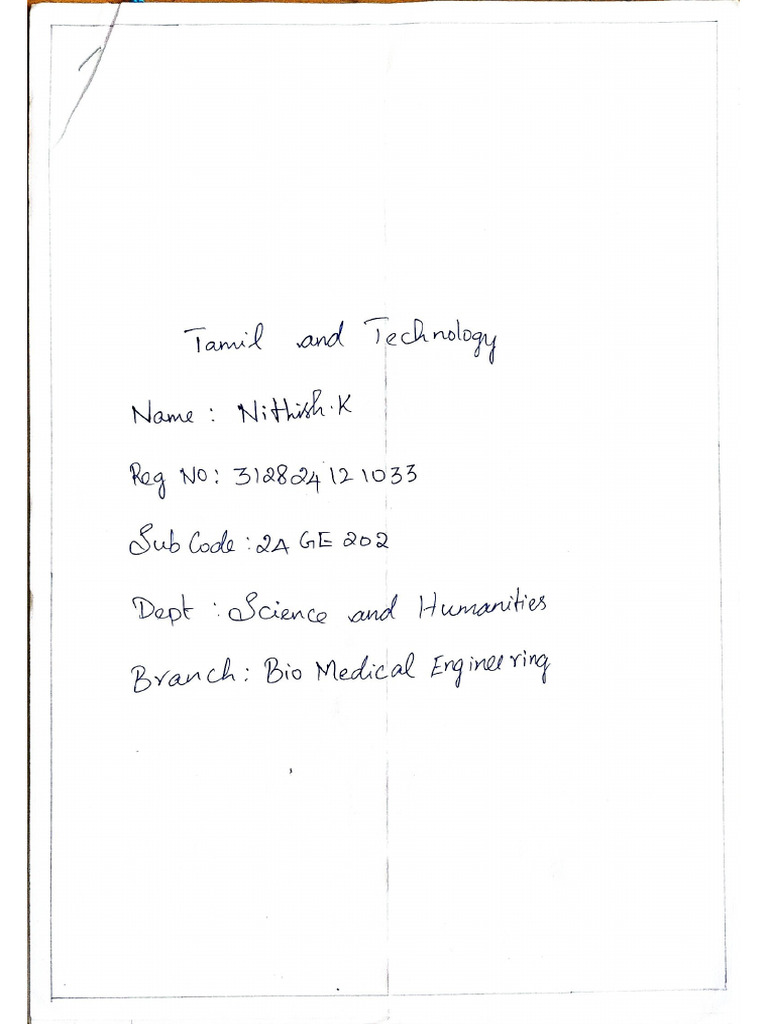 Tamil and Technology
Name : Nithish.K
Reg No: 312824121033
Sub Code : 2A GE 202
Dept : Science and Humanities
Branch : Bio Medical Engineering